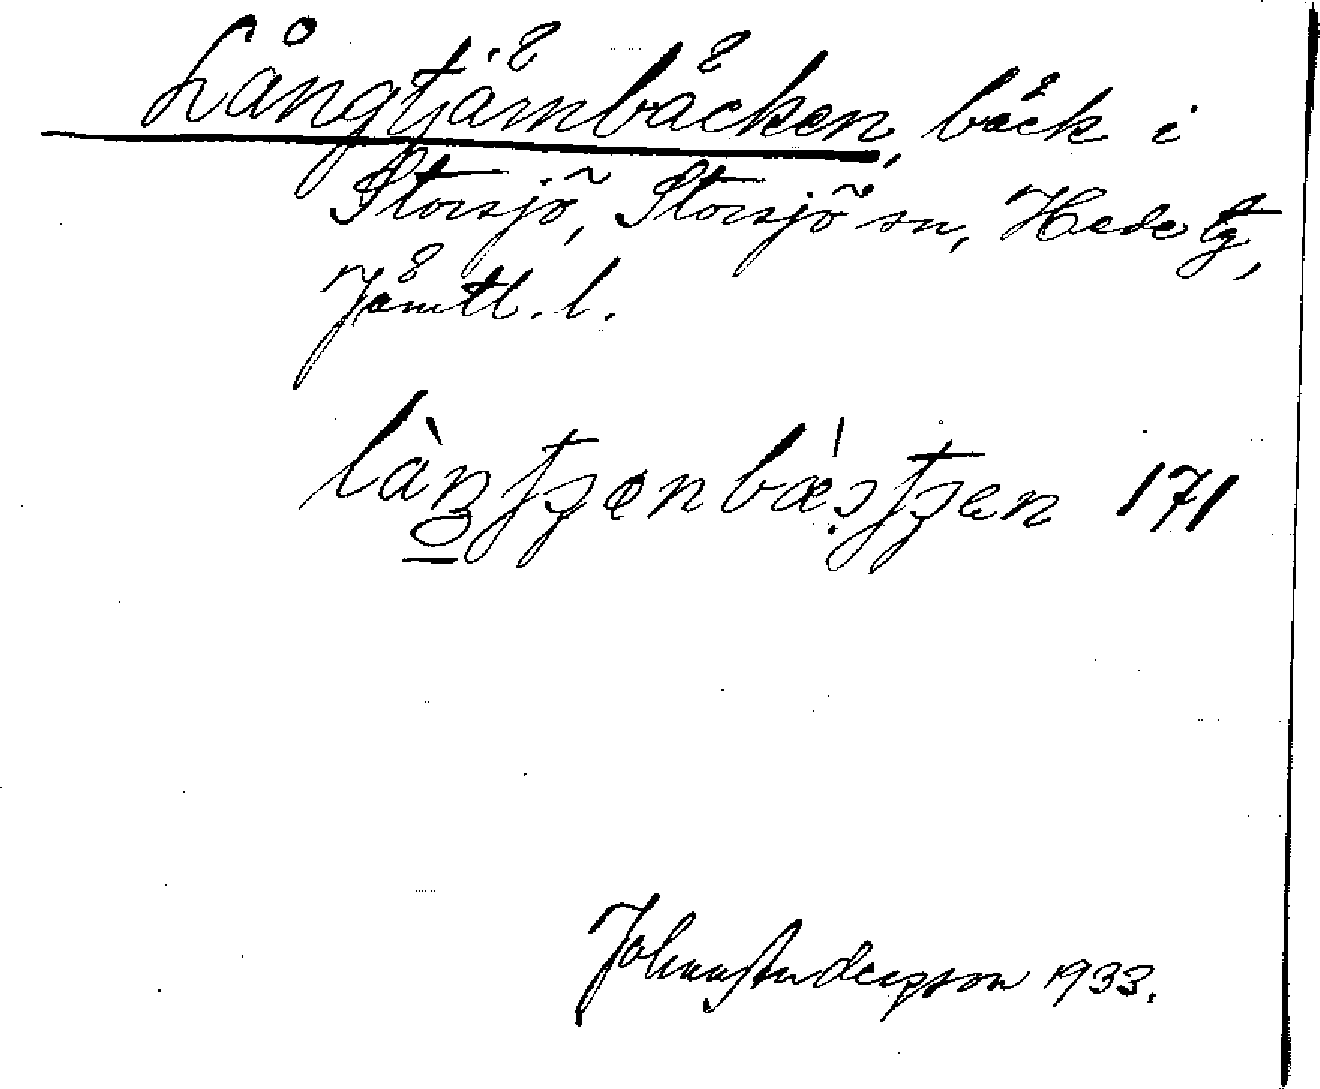 Långtjärnbäcken, bäck i
Storsjö, Storsjö sn, Hede tg,
Jämtl. l.
171
John Andersson 1933.